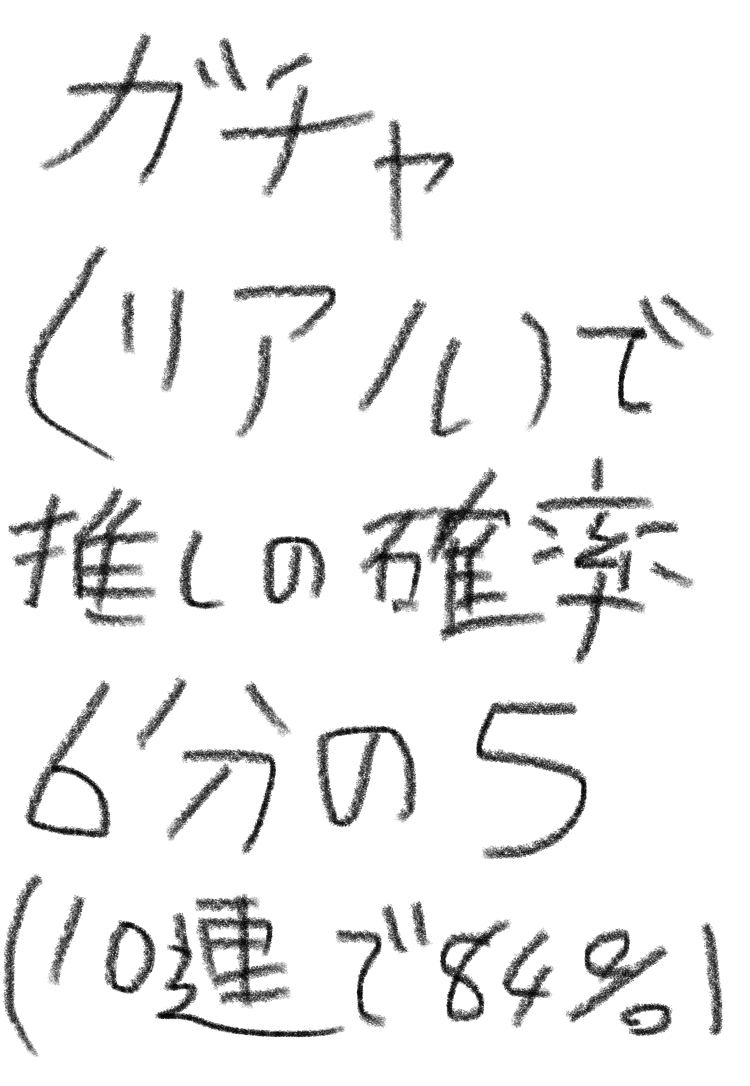 ガチャ
(リアル)で
推しの確率
6分の5
(10連で84%)